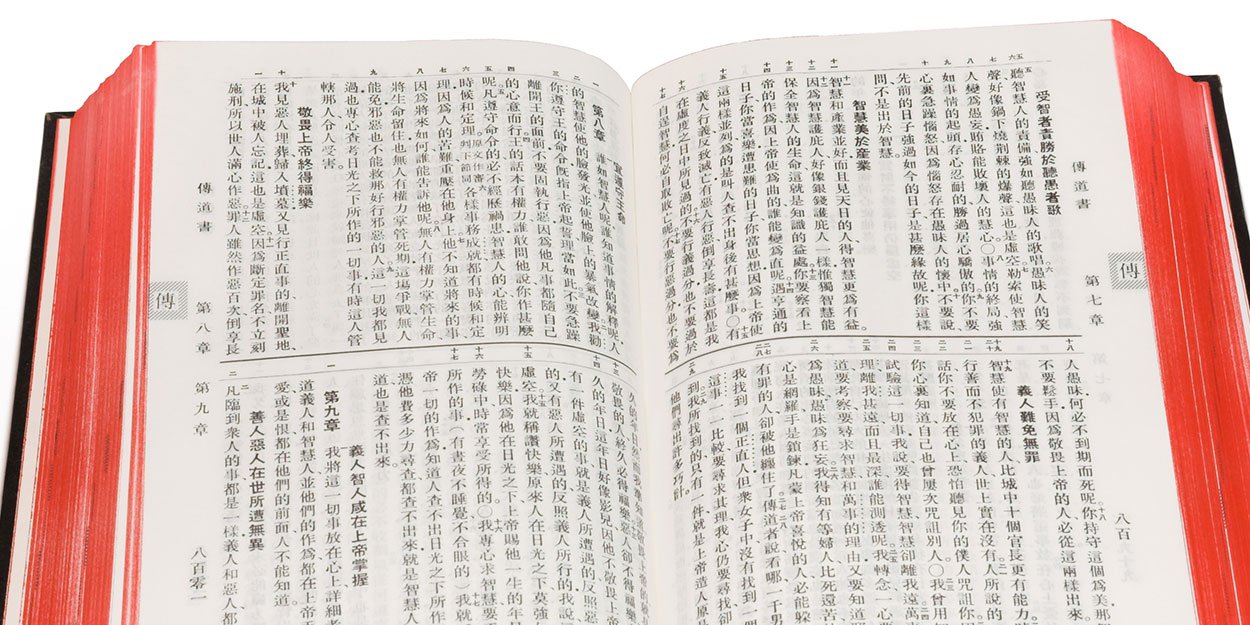 傳道書
第七章
八百
傳
受智者責勝於聽愚者歌
聽智慧人的責備強如聽愚昧人的歌唱愚昧人的笑
聲好像鍋下燒荊棘的爆聲這也是虛空勒索使智慧
人變為愚妄賄賂能敗壞人的慧心○事情的終局強
如事情的起頭存心忍耐的勝過居心驕傲的你不要
心裏急躁惱怒因為惱怒存在愚昧人的懷中不要說
先前的日子強過如今的日子是甚麼緣故呢你這樣
問不是出於智慧
智慧美於產業
智慧和產業並好而且見天日的人得智慧更為有益
因為智慧護庇人好像銀錢護庇人一樣惟獨智慧能
保全智慧人的生命這就是知識的益處你要察看上
帝的作為因上帝使為曲的誰能變為直呢遇亨通的
日子你當喜樂遭患難的日子你當思想因為上帝使
這兩樣並列為的是叫人查不出身後有甚麼事○有
義人行義反致滅亡有惡人行惡倒享長壽這都是我
在虛度之日中所見過的不要行義過分也不要過於
自逞智慧何必自取敗亡呢不要行惡過分也不要為
人愚昧何必不到期而死呢你持守這個為美那
不要鬆手因為敬畏上帝的人必從這兩樣出來
義人難免無罪
智慧使有智慧的人比城中十個官長更有能力
行善而不犯罪的義人世上實在沒有人所說的
話你不要放在心上恐怕聽見你的僕人咒詛你因
你心裏知道自己也曾屢次咒詛別人○我曾用
試驗這一切事我說要得智慧智慧卻離我遠萬
理離我甚遠而且最深誰能測透呢我轉念一心要
道要考察要尋求智慧和萬事的理由又要知道邪
為愚昧愚昧為狂妄我得知有等婦人比死還苦
心是網羅手是鎖鍊凡蒙上帝喜悅的人必能躲
有罪的人卻被他纏住了傳道者說看哪一千男
我找到一個正直人但衆女子中沒有找到一個
這事一一比較要尋求其理我心仍要尋找
到我所找到的只有一件就是上帝造人原是
他們尋出許多巧計
第八章 誰如智慧人呢誰知道事情的解釋呢人
的智慧使他的臉發光並使他臉上的暴氣改變我勸
你遵守王的命令既指上帝起誓理當如此不要急躁
離開王的面前不要固執行惡因為他凡事都隨自己
的心意而行王的話本有權力誰敢問他說你作甚麼
呢凡遵守命令的必不經歷禍患智慧人的心能辨明
時候和定理原文作審判下節同各樣事務成就都有時候和定
理因為人的苦難重壓在他身上他不知道將來的事
因為將來如何誰能告訴他呢無人有權力掌管生命
將生命留住也無人有權力掌管死期這場爭戰無人
能免邪惡也不能救那好行邪惡的人這一切我都見
過也專心查考日光之下所作的一切事有時這人管
轄那人令人受害
敬畏上帝終得福樂
我見惡人埋葬歸入墳墓又見行正直事的離開聖地
在城中被人忘記這也是虛空因為斷定罪名不立刻
施刑所以世人滿心作惡罪人雖然作惡百次倒享長
久的年日
敬畏的人終久必得福樂惡人卻不得福樂
久的年日這年日好像影兒因他不敬畏上帝
有一件虛空的事就是義人所遭遇的反照惡
的又有惡人所遭遇的反照義人所行的我說
虛空我就稱讚快樂原來人在日光之下莫強
快樂因為他在日光之下上帝賜他一生的年
勞碌中時常享受所得的○我專心求智慧要
所作的事(有晝夜不睡覺不合眼的)我就
帝一切的作為知道人查不出日光之下所作
憑他費多少力尋查都查不出來就是智慧人
道也是查不出來
第九章
義人智人咸在上帝掌握
我將這一切事放在心上詳細考
道義人和智慧人並他們的作為都在上帝手
愛或是恨都在他們的前面人不能知道
善人惡人在世所遭無異
凡臨到衆人的事都是一樣義人和惡人都
傳道書
第八章
第九章
八百零一
傳